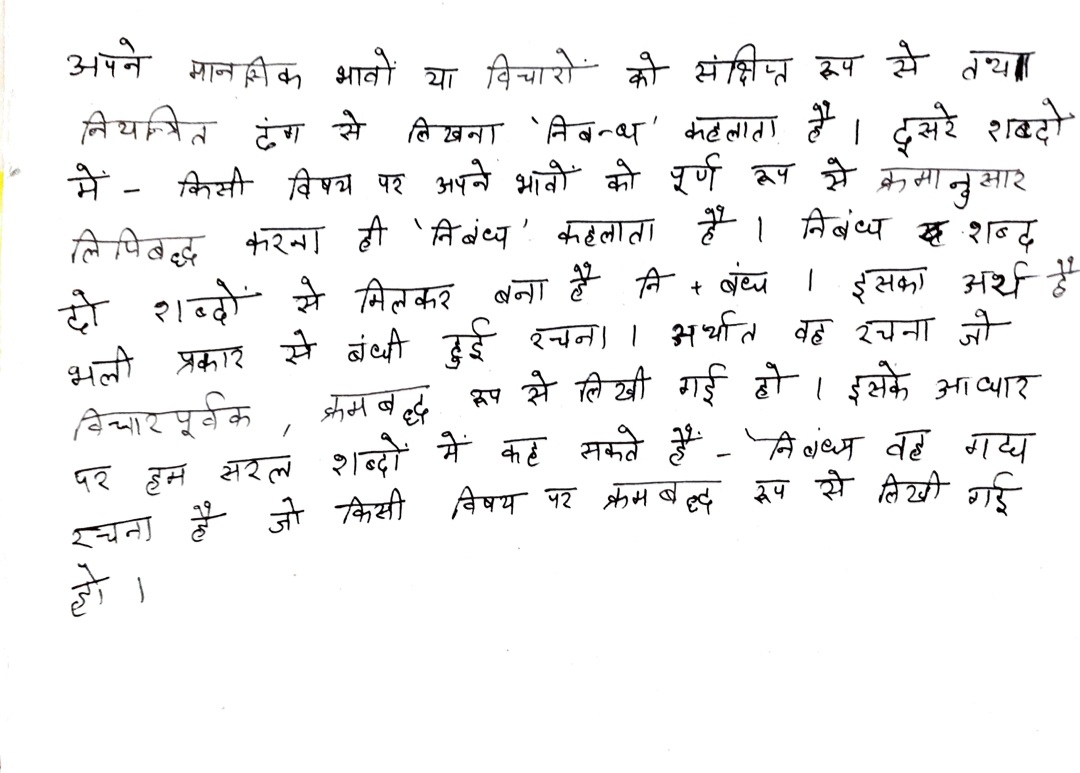 अपने मानसिक भावों या विचारों को संक्षिप्त रूप से तथा
नियन्त्रित ढंग से लिखना 'निबन्ध' कहलाता है । दूसरे शब्दों
में - किसी विषय पर अपने भावों को पूर्ण रूप से क्रमानुसार
लिपिबद्ध करना ही 'निबंध' कहलाता है । निबंध शब्द
दो शब्दों से मिलकर बना है नि + बंध । इसका अर्थ है
भली प्रकार से बंधी हुई रचना । अर्थात वह रचना जो
विचारपूर्वक , क्रमबद्ध रूप से लिखी गई हो । इसके आधार
पर हम सरल शब्दों में कह सकते हैं - 'निबंध वह गद्य
रचना है जो किसी विषय पर क्रमबद्ध रूप से लिखी गई
हो ।